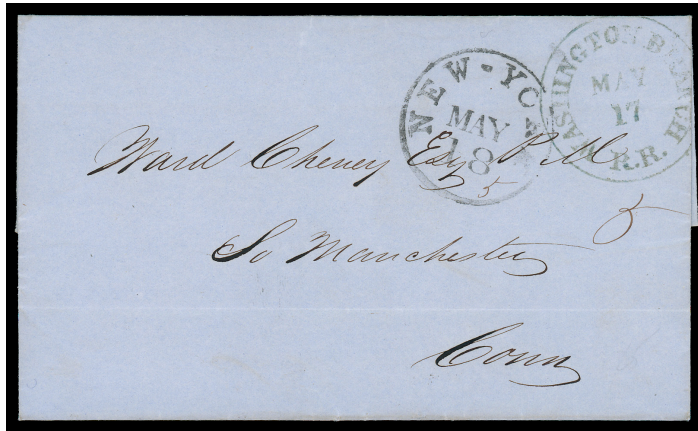 NEW-YO
MAY
18
WASHINGTON BRANCH
MAY
17
R.R.
Ward Cheney Esq P.M.
5
5
So Manchester
Conn